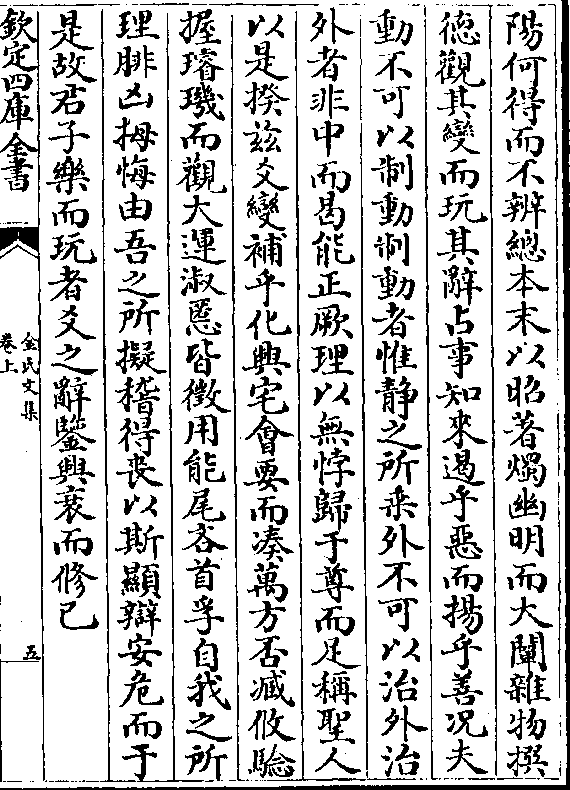 陽何得而不辨總本末以昭著燭幽明而大闡雜物撰
德觀其變而玩其辭占事知來遏乎惡而揚乎善况夫
動不可以制動制動者惟静之所乗外不可以治外治
外者非中而曷能正厥理以無悖歸于尊而足稱聖人
以是揆兹爻變補乎化興宅會要而凑萬方否臧攸驗
握璿璣而觀大運淑慝皆徴用能尾吝首孚自我之所
理腓凶拇悔由吾之所擬稽得丧以斯顯辯安危而于
是故君子樂而玩者爻之辭鑒興衰而修已
欽定四庫全書
金氏文集
卷上
五